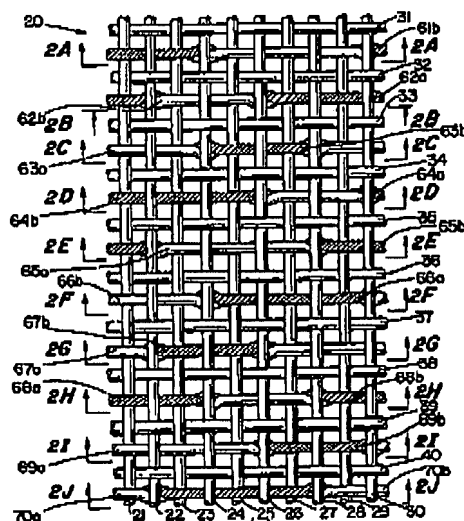 20
31
61b
2A 2A
32
62a
62b
33
2B 2B
63b
2C 2C
63a
34
64a
2D 2D
64b
35
65b
2E 2E
65a
36
66b
66a
2F 2F
67b
37
2G 2G
67a
38
68a
68b
2H 2H
39
69b
2I 2I
69a
40
70b
2J 2J
70a 21 22 23 24 25 26 27 28 29 30